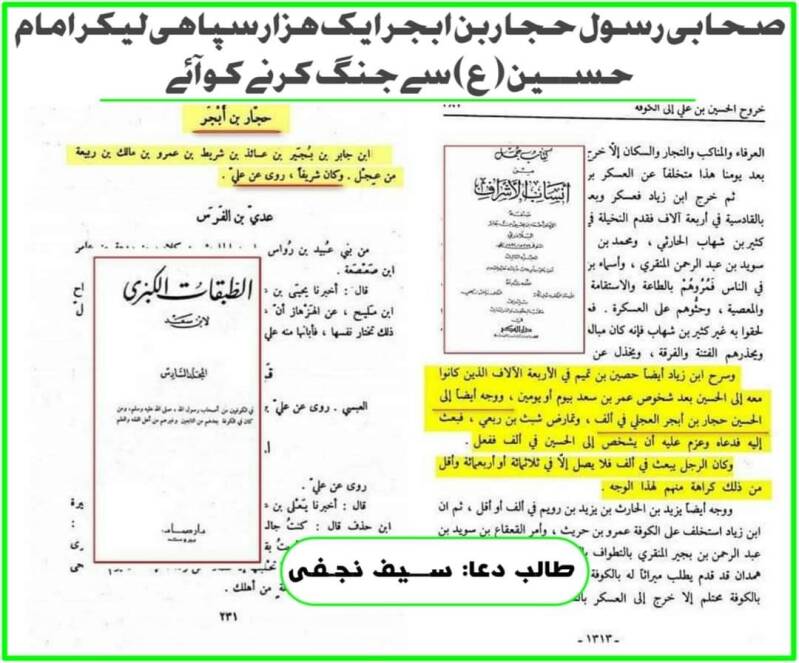 صحابی رسول حجار بن ابجر ایک ھزار سپاھی لیکر امام
حسین (ع) سے جنگ کرنے کو آئے
خروج الحسين بن علي إلى الكوفة
العرفاء والمناكب والتجار والسكان إلّا خرج
بعد يومنا هذا متخلفاً عن العسكر بر
ثم خرج ابن زياد فعسكر وبعـ
بالقادسية في أربعة آلاف فقدم النخيلة في
كثير بن شهاب الحارثي، ومحمد بن
سويد بن عبد الرحمن المنقري، وأسماء بن
في الناس فَمُرُوهُمْ بالطاعة والاستقامة
والمعصية، وحثُّوهم على العسكرة. فـ
لحقوا به غير كثير بن شهاب فإنه كان مباله
ويحذرهم الفتنة والفرقة، ويخذل عن
وسرح ابن زياد أيضاً حصين بن تميم في الأربعة الآلاف الذين كانوا
معه إلى الحسين بعد شخوص عمر بن سعد بيوم أو يومين، ووجه أيضاً إلى
الحسين حجار بن أبجر العجلي في ألف، وتمارض شبث بن ربعي، فبعث
إليه فدعاه وعزم عليه أن يشخص إلى الحسين في ألف ففعل.
وكان الرجل يبعث في ألف فلا يصل إلّا في ثلاثمائة أو أربعمائة وأقل
من ذلك كراهة منهم لهذا الوجه.
ووجه أيضاً يزيد بن الحارث بن يزيد بن رويم في ألف أو أقل، ثم ان
ابن زياد استخلف على الكوفة عمرو بن حريث، وأمر القعقاع بن سويد بن
عبد الرحمن بن بجير المنقري بالتطواف با
همدان قد قدم يطلب ميراثاً له بالكوفة
بالكوفة محتلم إلا خرج إلى العسكر بالـ
-١٣١٣-
كتاب جمل
من
أنساب الأشراف
حجار بن أبْجَر
ابن جابر بن بُجَيْر بن عائذ بن شريط بن عمرو بن مالك بن ربيعة
من عِجْل. وكان شريفاً، روى عن عليّ.
عديّ بن الفَرَس
من بني عُبيد بن رُواس
ابن صَعْصَعة.
قال: أخبرنا يحيَى بن
ابن مكيج، عن الهَزْهاز أنّ
ذلك تختار نفسها، فأبانها منه علي
العبسي. روى عن عليّ
روى عن عليّ.
قال: أخبرنا يَعْلَى بن
ابن حذف قال: كنتُ جالـ
من أهلك.
٢٣١
الطبقات الكبرى
لابن سعد
المجلد السادس
في الكوفيين من أصحاب رسول الله، صلى الله عليه وسلم، ومن
كان في الكوفة بعدهم من التابعين وغيرهم من أهل الفقه والعلم
دار صادر
بيروت
طالب دعا: سیف نجفی